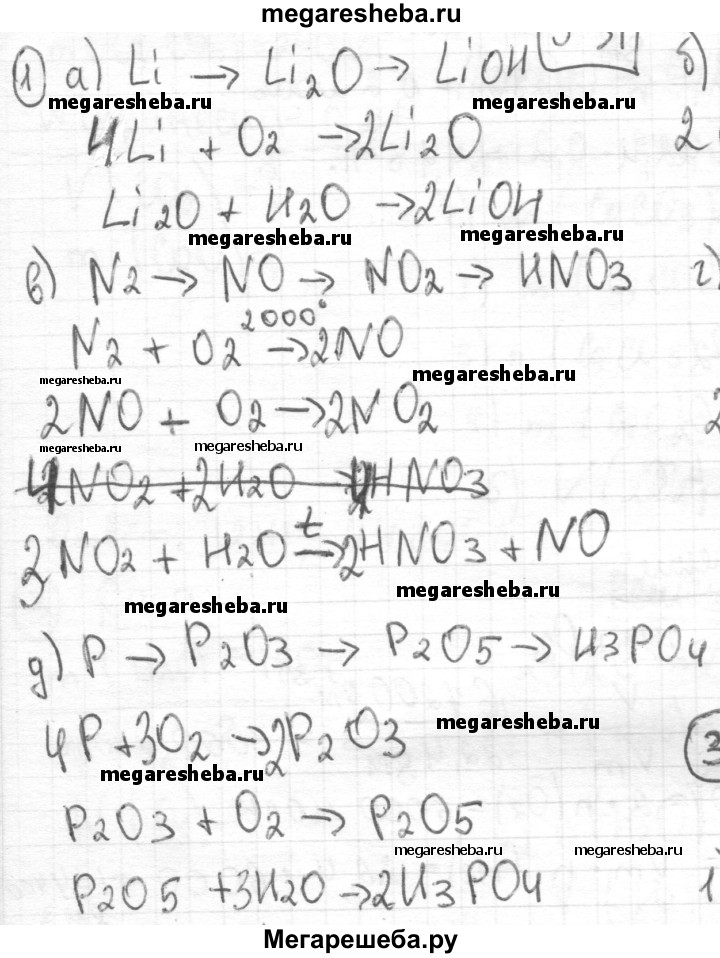 megaresheba.ru
1 а) Li → Li2O → LiOH б)
megaresheba.ru megaresheba.ru
4Li + O2 → 2Li2O 2
Li2O + H2O → 2LiOH
megaresheba.ru megaresheba.ru
в) N2 → NO → NO2 → HNO3 г)
N2 + O2 2000° → 2NO
megaresheba.ru megaresheba.ru
2NO + O2 → 2NO2 2
megaresheba.ru megaresheba.ru
NO2 + 2H2O → HNO3
3NO2 + H2O t → 2HNO3 + NO
megaresheba.ru
megaresheba.ru
д) P → P2O3 → P2O5 → H3PO4
4P + 3O2 → 2P2O3 3
megaresheba.ru
megaresheba.ru
P2O3 + O2 → P2O5
megaresheba.ru megaresheba.ru
P2O5 + 3H2O → 2H3PO4 1
Мегарешеба.ру